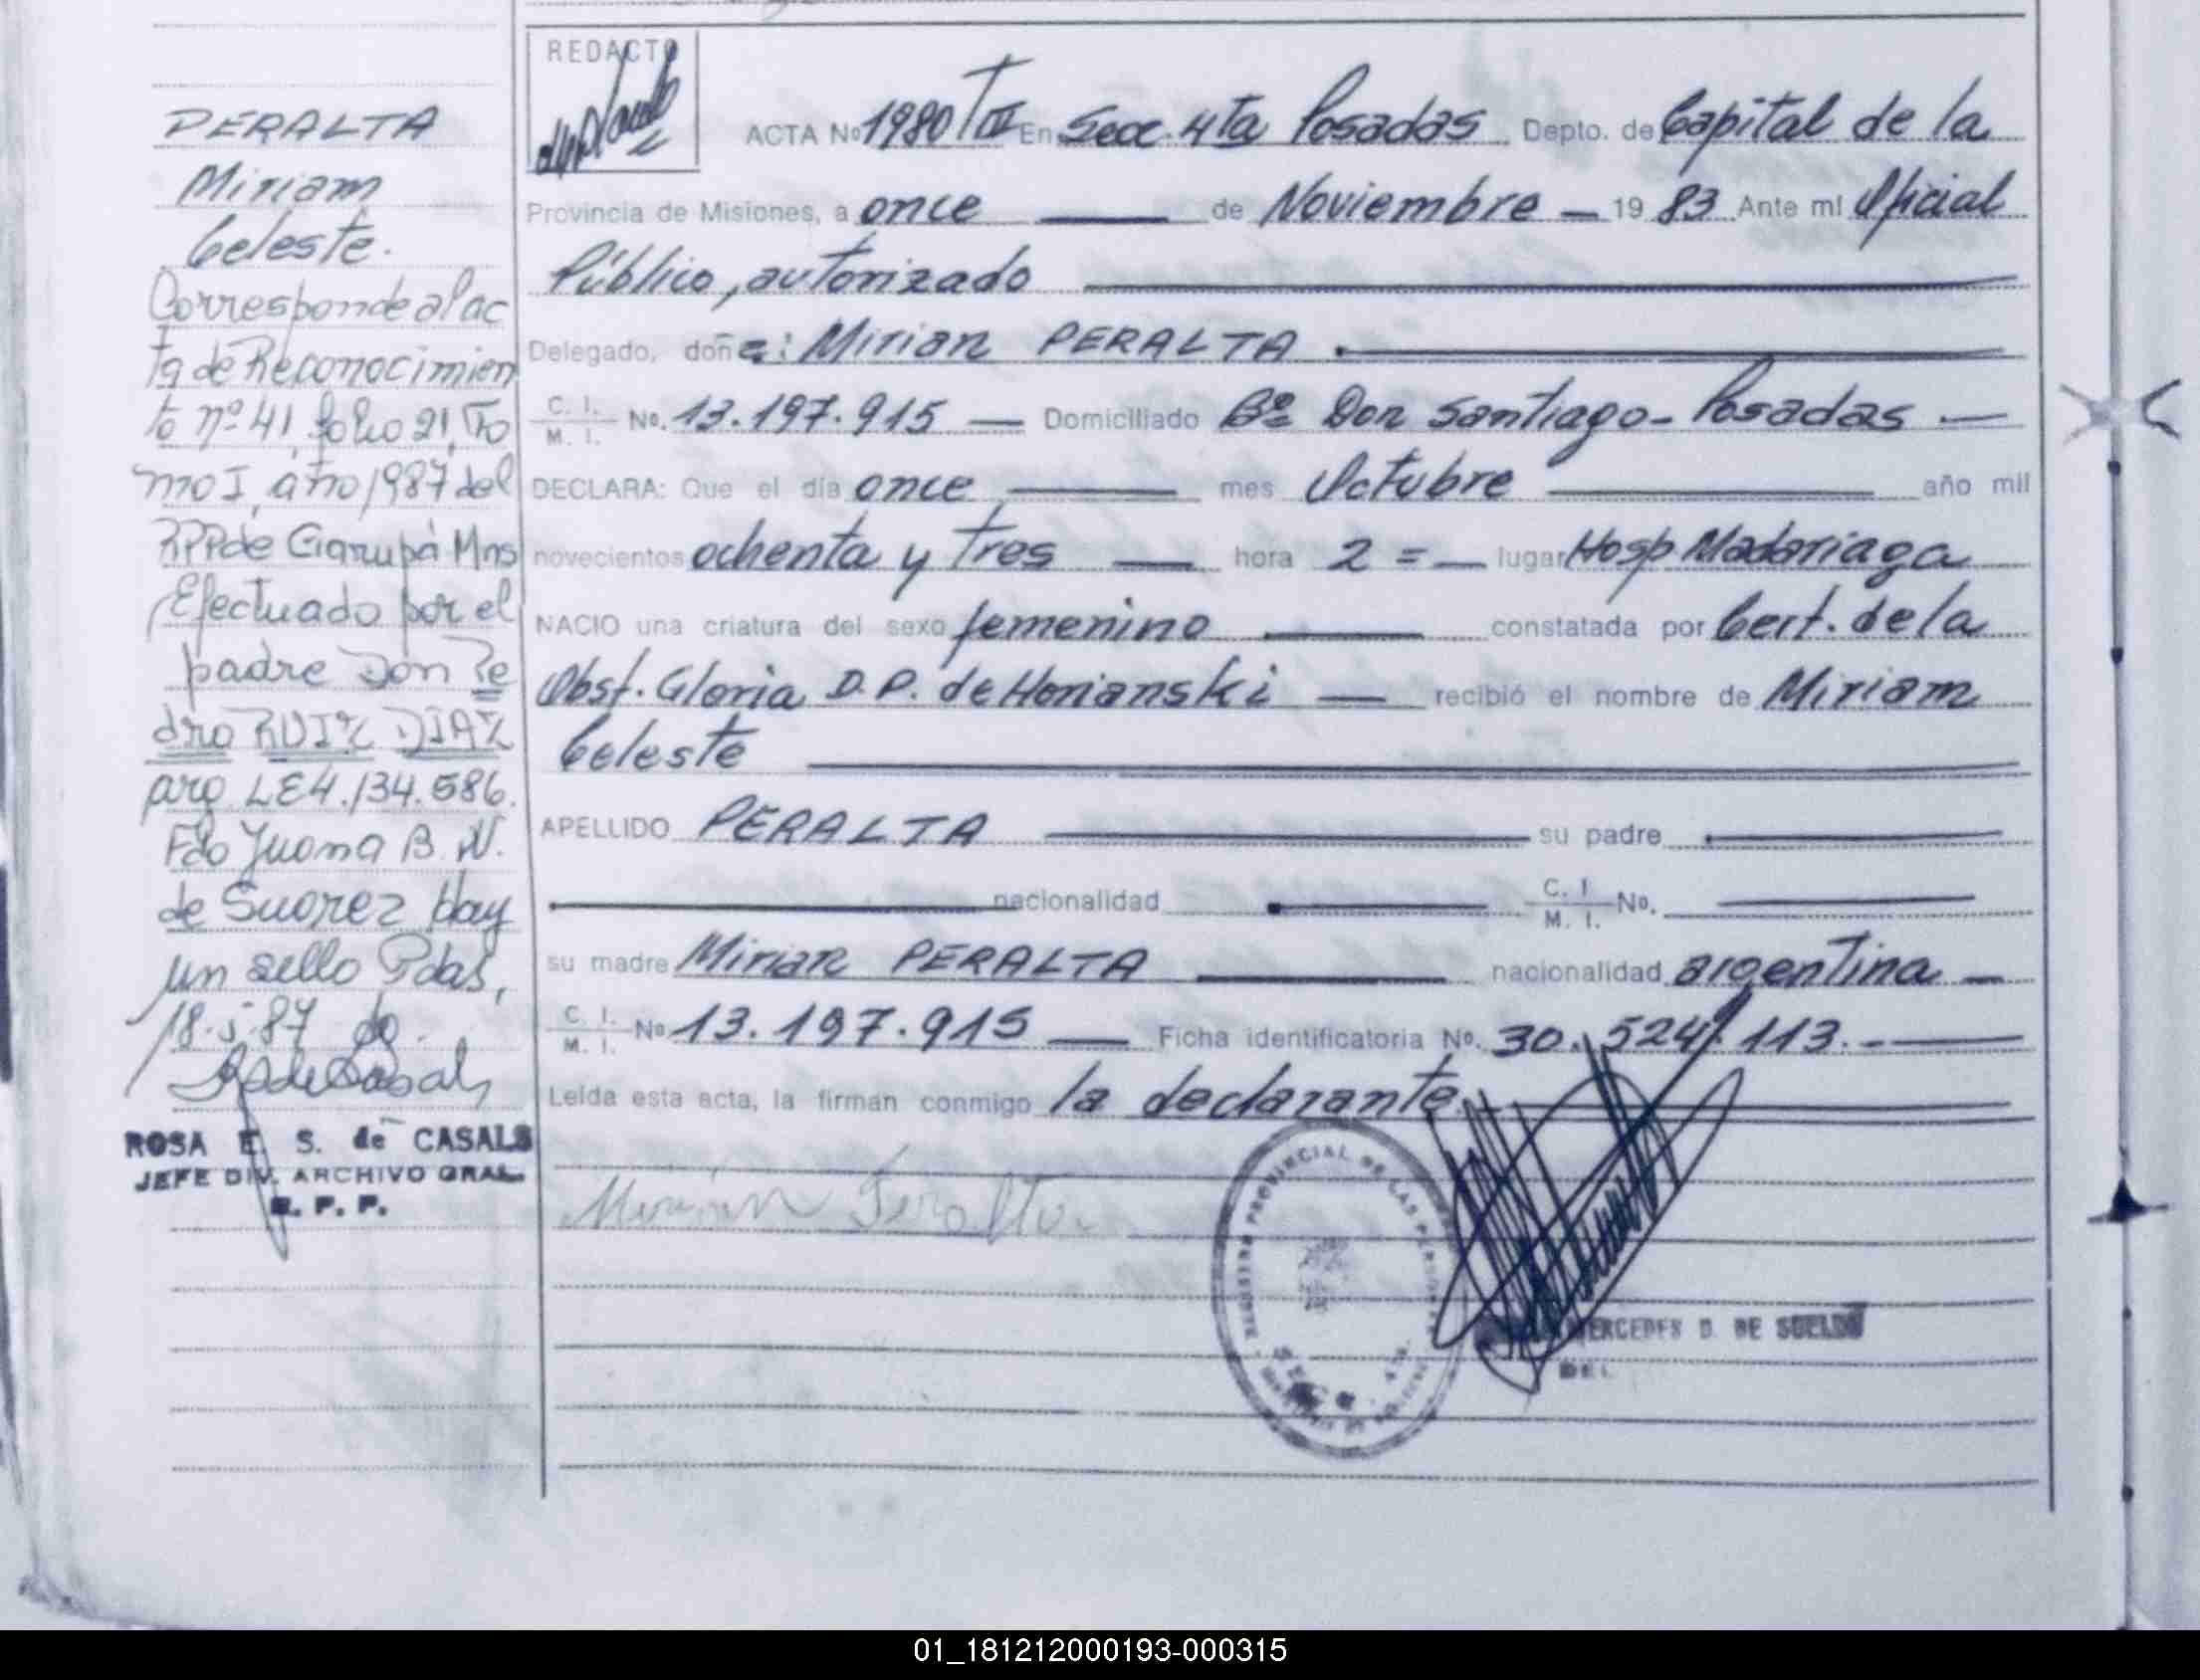 PERALTA
Miriam
Celeste.
Corresponde al ac
ta de Reconocimien
to nº 41, folio 21, To
mo I, año 1987 del
RPP de Garupá Mns
Efectuado por el
padre Don Pe
dro RUIZ DIAZ
arg LE 4.134.586.
Fdo Juana B. N.
de Suarez hay
un sello Pdas,
18-5-87
ROSA E. S. de CASALS
JEFE DIV. ARCHIVO GRAL.
R. P. P.
REDACTO
ACTA Nº 1980/TIII En Secc. 4ta Posadas Depto. de Capital de la
Provincia de Misiones, a once de Noviembre 19 83 Ante mi Oficial
Público, autorizado
Delegado, doña: Mirian PERALTA.
C. I. M. I. No. 13.197.915 Domiciliado Bº Don Santiago - Posadas
DECLARA: Que el día once mes Octubre año mil
novecientos ochenta y tres hora 2 = lugar Hosp Madariaga
NACIO una criatura del sexo femenino constatada por Cert. de la
Obst. Gloria D. P. de Horianski recibió el nombre de Miriam
Celeste
APELLIDO PERALTA su padre
nacionalidad C. I. M. I. No.
su madre Mirian PERALTA nacionalidad argentina
C. I. M. I. No 13.197.915 Ficha identificatoria No. 30.524.113.-
Leída esta acta, la firman conmigo la declarante.
Mirian Peralta
REGISTRO PROVINCIAL DE LAS PERSONAS
MERCEDES D. DE SUELDO
DEL
01_181212000193-000315